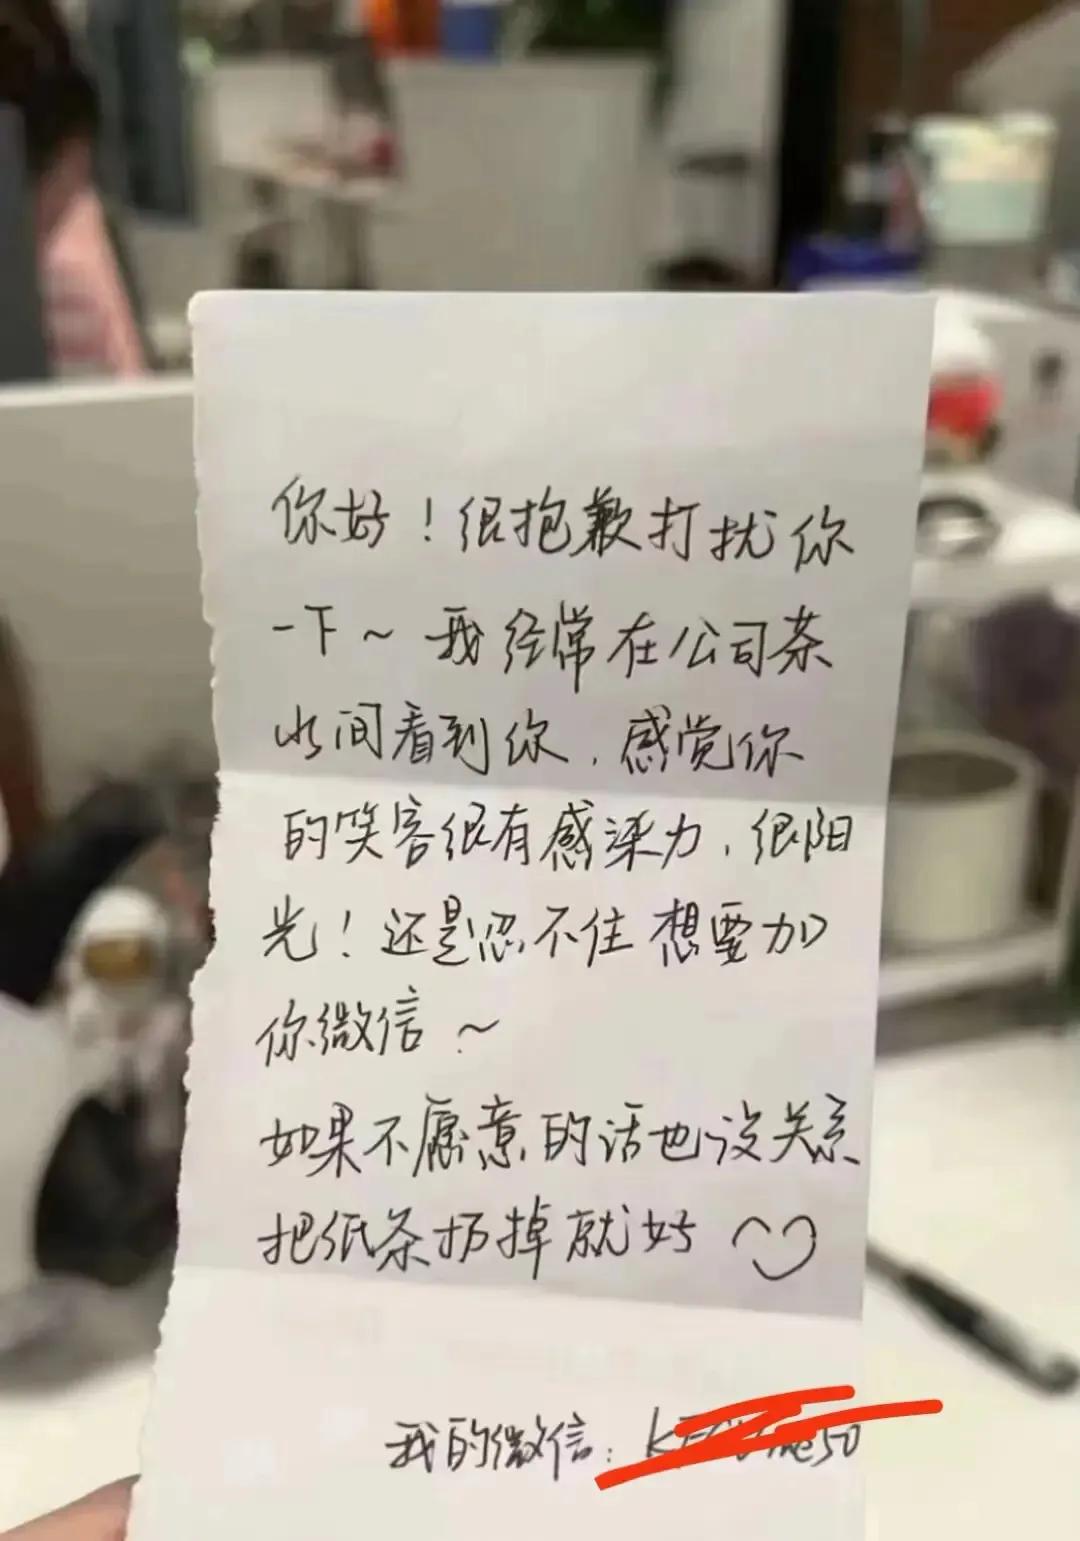 你好！很抱歉打扰你
一下～我经常在公司茶
水间看到你，感觉你
的笑容很有感染力，很阳
光！还是忍不住想要加
你微信～
如果不愿意的话也没关系
把纸条扔掉就好
我的微信：